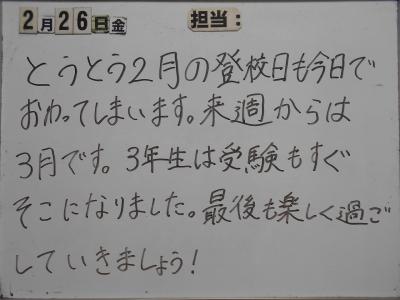 2月26日金 担当:
とうとう2月の登校日も今日で
おわってしまいます。来週からは
3月です。3年生は受験もすぐ
そこになりました。最後も楽しく過ご
していきましょう!